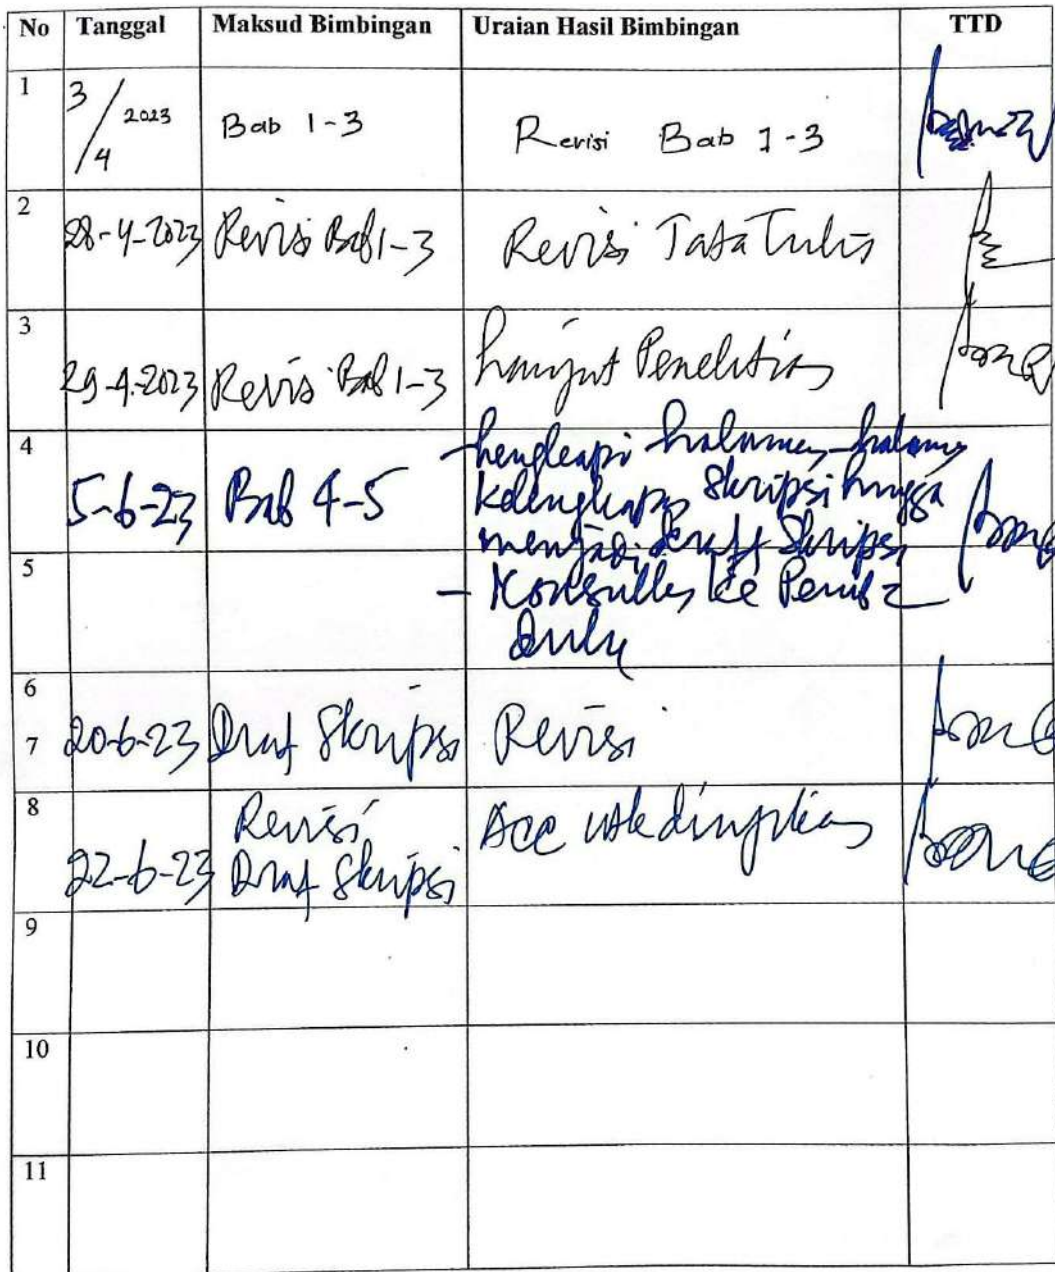 No Tanggal Maksud Bimbingan Uraian Hasil Bimbingan TTD
1 3/4 2023 Bab 1-3 Revisi Bab 1-3
2 28-4-2023 Revisi Bab 1-3 Revisi Tata Tulis
3 29-4-2023 Revisi Bab 1-3 Lanjut Penelitian
4 5-6-23 Bab 4-5 - Lengkapi halaman-halaman
kelengkapan Skripsi hingga
menjadi draft Skripsi
5 - Konsultasi ke Pemb 2
dulu
6
7 20-6-23 Draf Skripsi Revisi
8 22-6-23 Revisi Draf Skripsi Acc utk diujikan
9
10
11